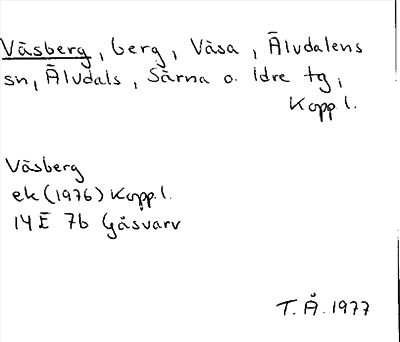 Våsberg, berg, Våsa, Älvdalens
sn, Älvdals, Särna o. Idre tg,
Kopp.l.
Våsberg
ek (1976) Kopp.l.
14E 7b Gåsvarv
T.Å. 1977